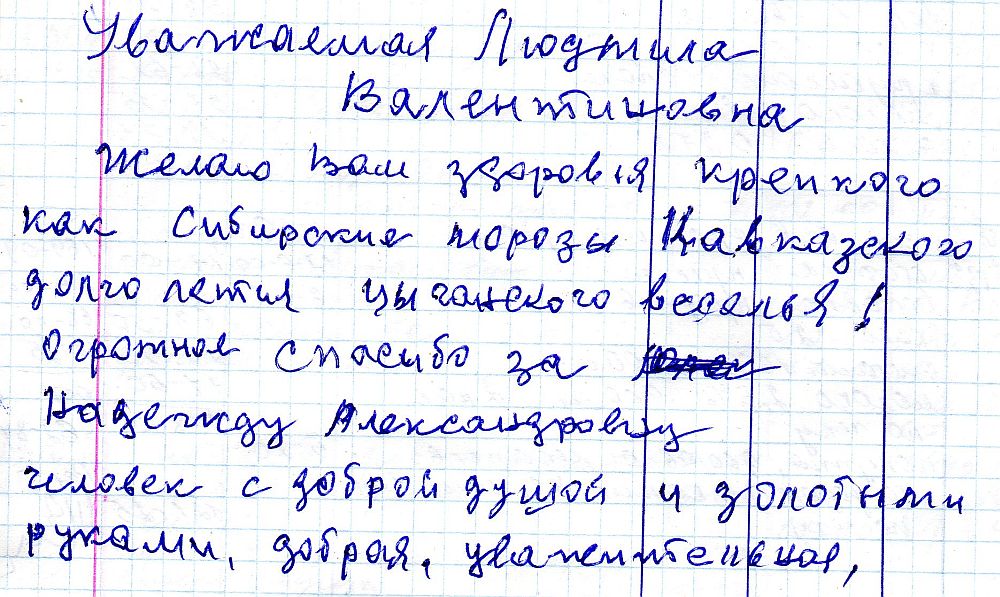 Уважаемая Людмила
Валентиновна
Желаю Вам здоровья крепкого
как Сибирские морозы Кавказского
долголетия цыганского веселья!
Огромное спасибо за
Надежду Александровну
человек с доброй душой и золотыми
руками, добрая, уважительная,